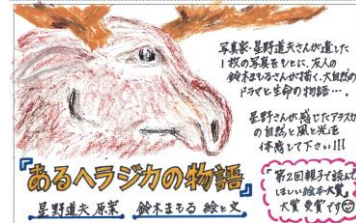 写真家・星野道夫さんが遺した
1枚の写真をもとに、友人の
鈴木まもるさんが描く、大自然の
ドラマと生命の物語…。
星野さんが感じたアラスカ
の自然と風と光を
体感して下さい!!!
『あるヘラジカの物語』
星野道夫 原案 鈴木まもる 絵と文
第2回親子で読んで
ほしい絵本大賞。
大賞受賞です